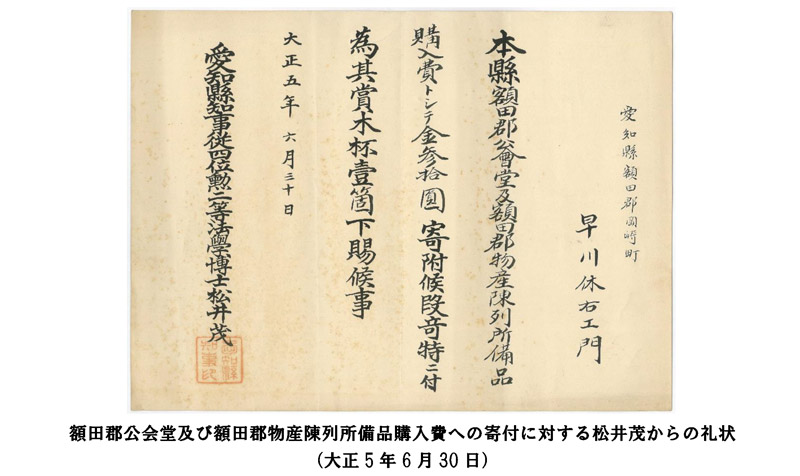 愛知縣額田郡岡崎町
早川休右エ門
本縣額田郡公會堂及額田郡物産陳列所備品
購入費トシテ金参拾圓寄附候段奇特ニ付
為其賞木杯壹箇下賜候事
大正五年六月三十日
愛知縣知事従四位勲二等法學博士松井茂
愛知縣知事印
額田郡公会堂及び額田郡物産陳列所備品購入費への寄付に対する松井茂からの礼状
(大正5年6月30日)